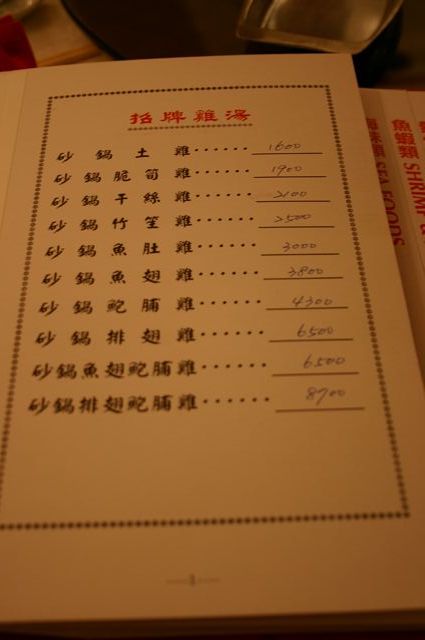 招牌雞湯
砂鍋土雞······ 1600
砂鍋脆筍雞······ 1900
砂鍋干絲雞······ 2100
砂鍋竹笙雞······ 2500
砂鍋魚肚雞······ 3000
砂鍋魚翅雞······ 3800
砂鍋鮑脯雞······ 4300
砂鍋排翅雞······ 6500
砂鍋魚翅鮑脯雞······ 6500
砂鍋排翅鮑脯雞······ 8700
SEA FOODS
魚蝦類 SHRIMP &